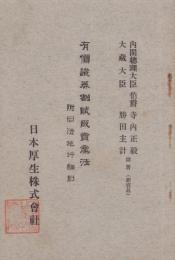 內閣總理大臣 伯爵 寺內正毅
大藏大臣 勝田主計
題字
有價證券割賦販賣業法
附同法施行細則
日本厚生株式會社